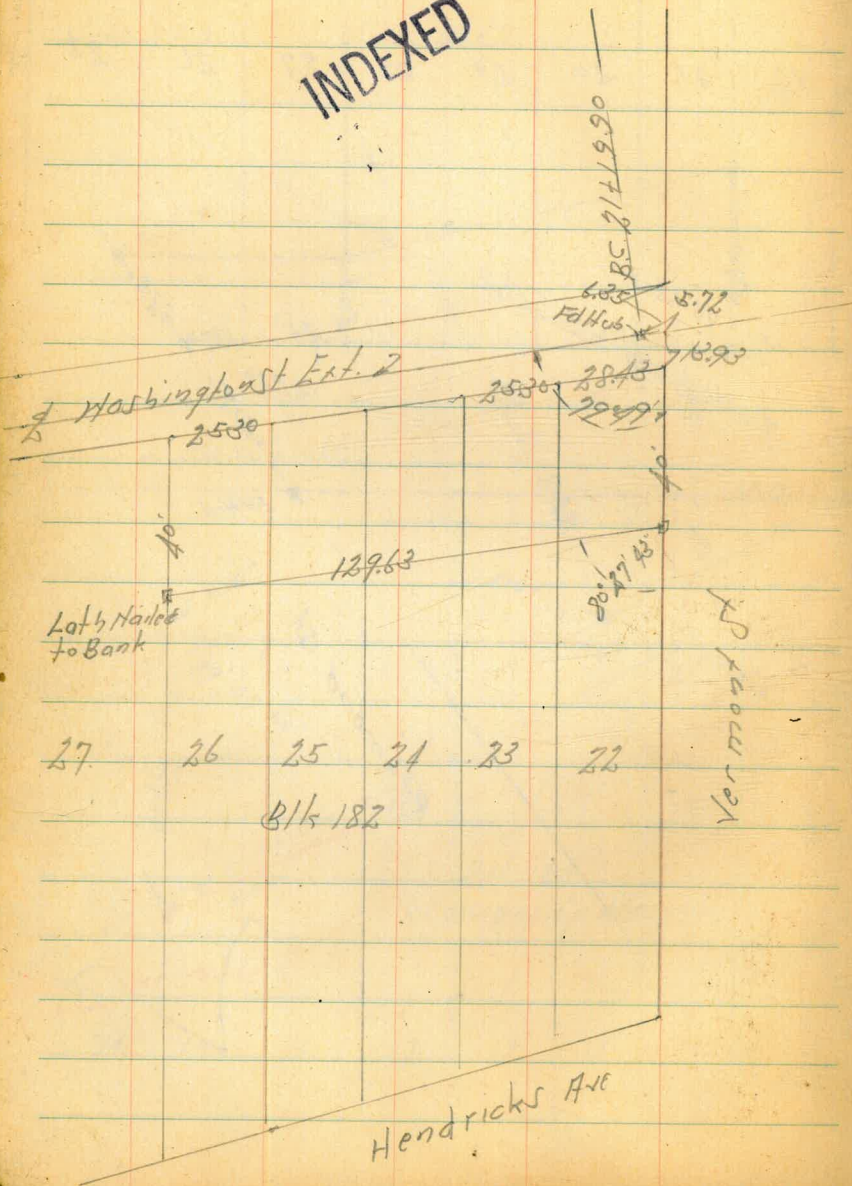 INDEXED
B.C. 21+19.90
6.35
5.72
Fd Hub
13.93
℄ Washington St Ext. 2
25.30
28.43
25.30
29.49
40'
40'
129.63
80° 47' 45"
Lath Nailed
to Bank
Vermont St
27
26
25
24
23
22
Blk 182
Hendricks Ave